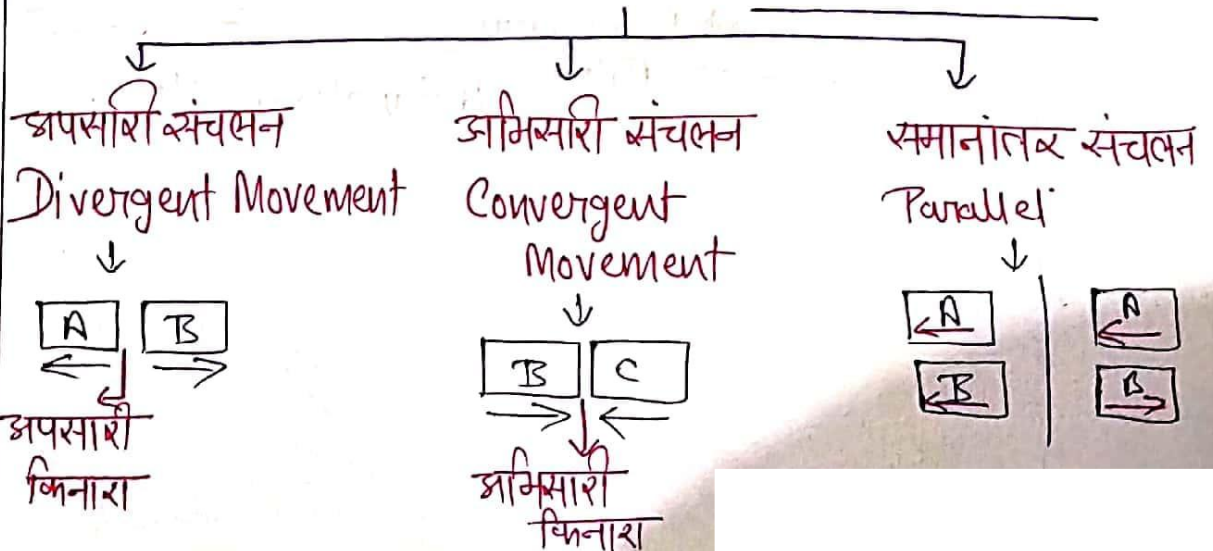 अपसारी संचलन
Divergent Movement
A B
अपसारी
किनारा
अभिसारी संचलन
Convergent
Movement
B C
अभिसारी
किनारा
समानांतर संचलन
Parallel
A A
B B